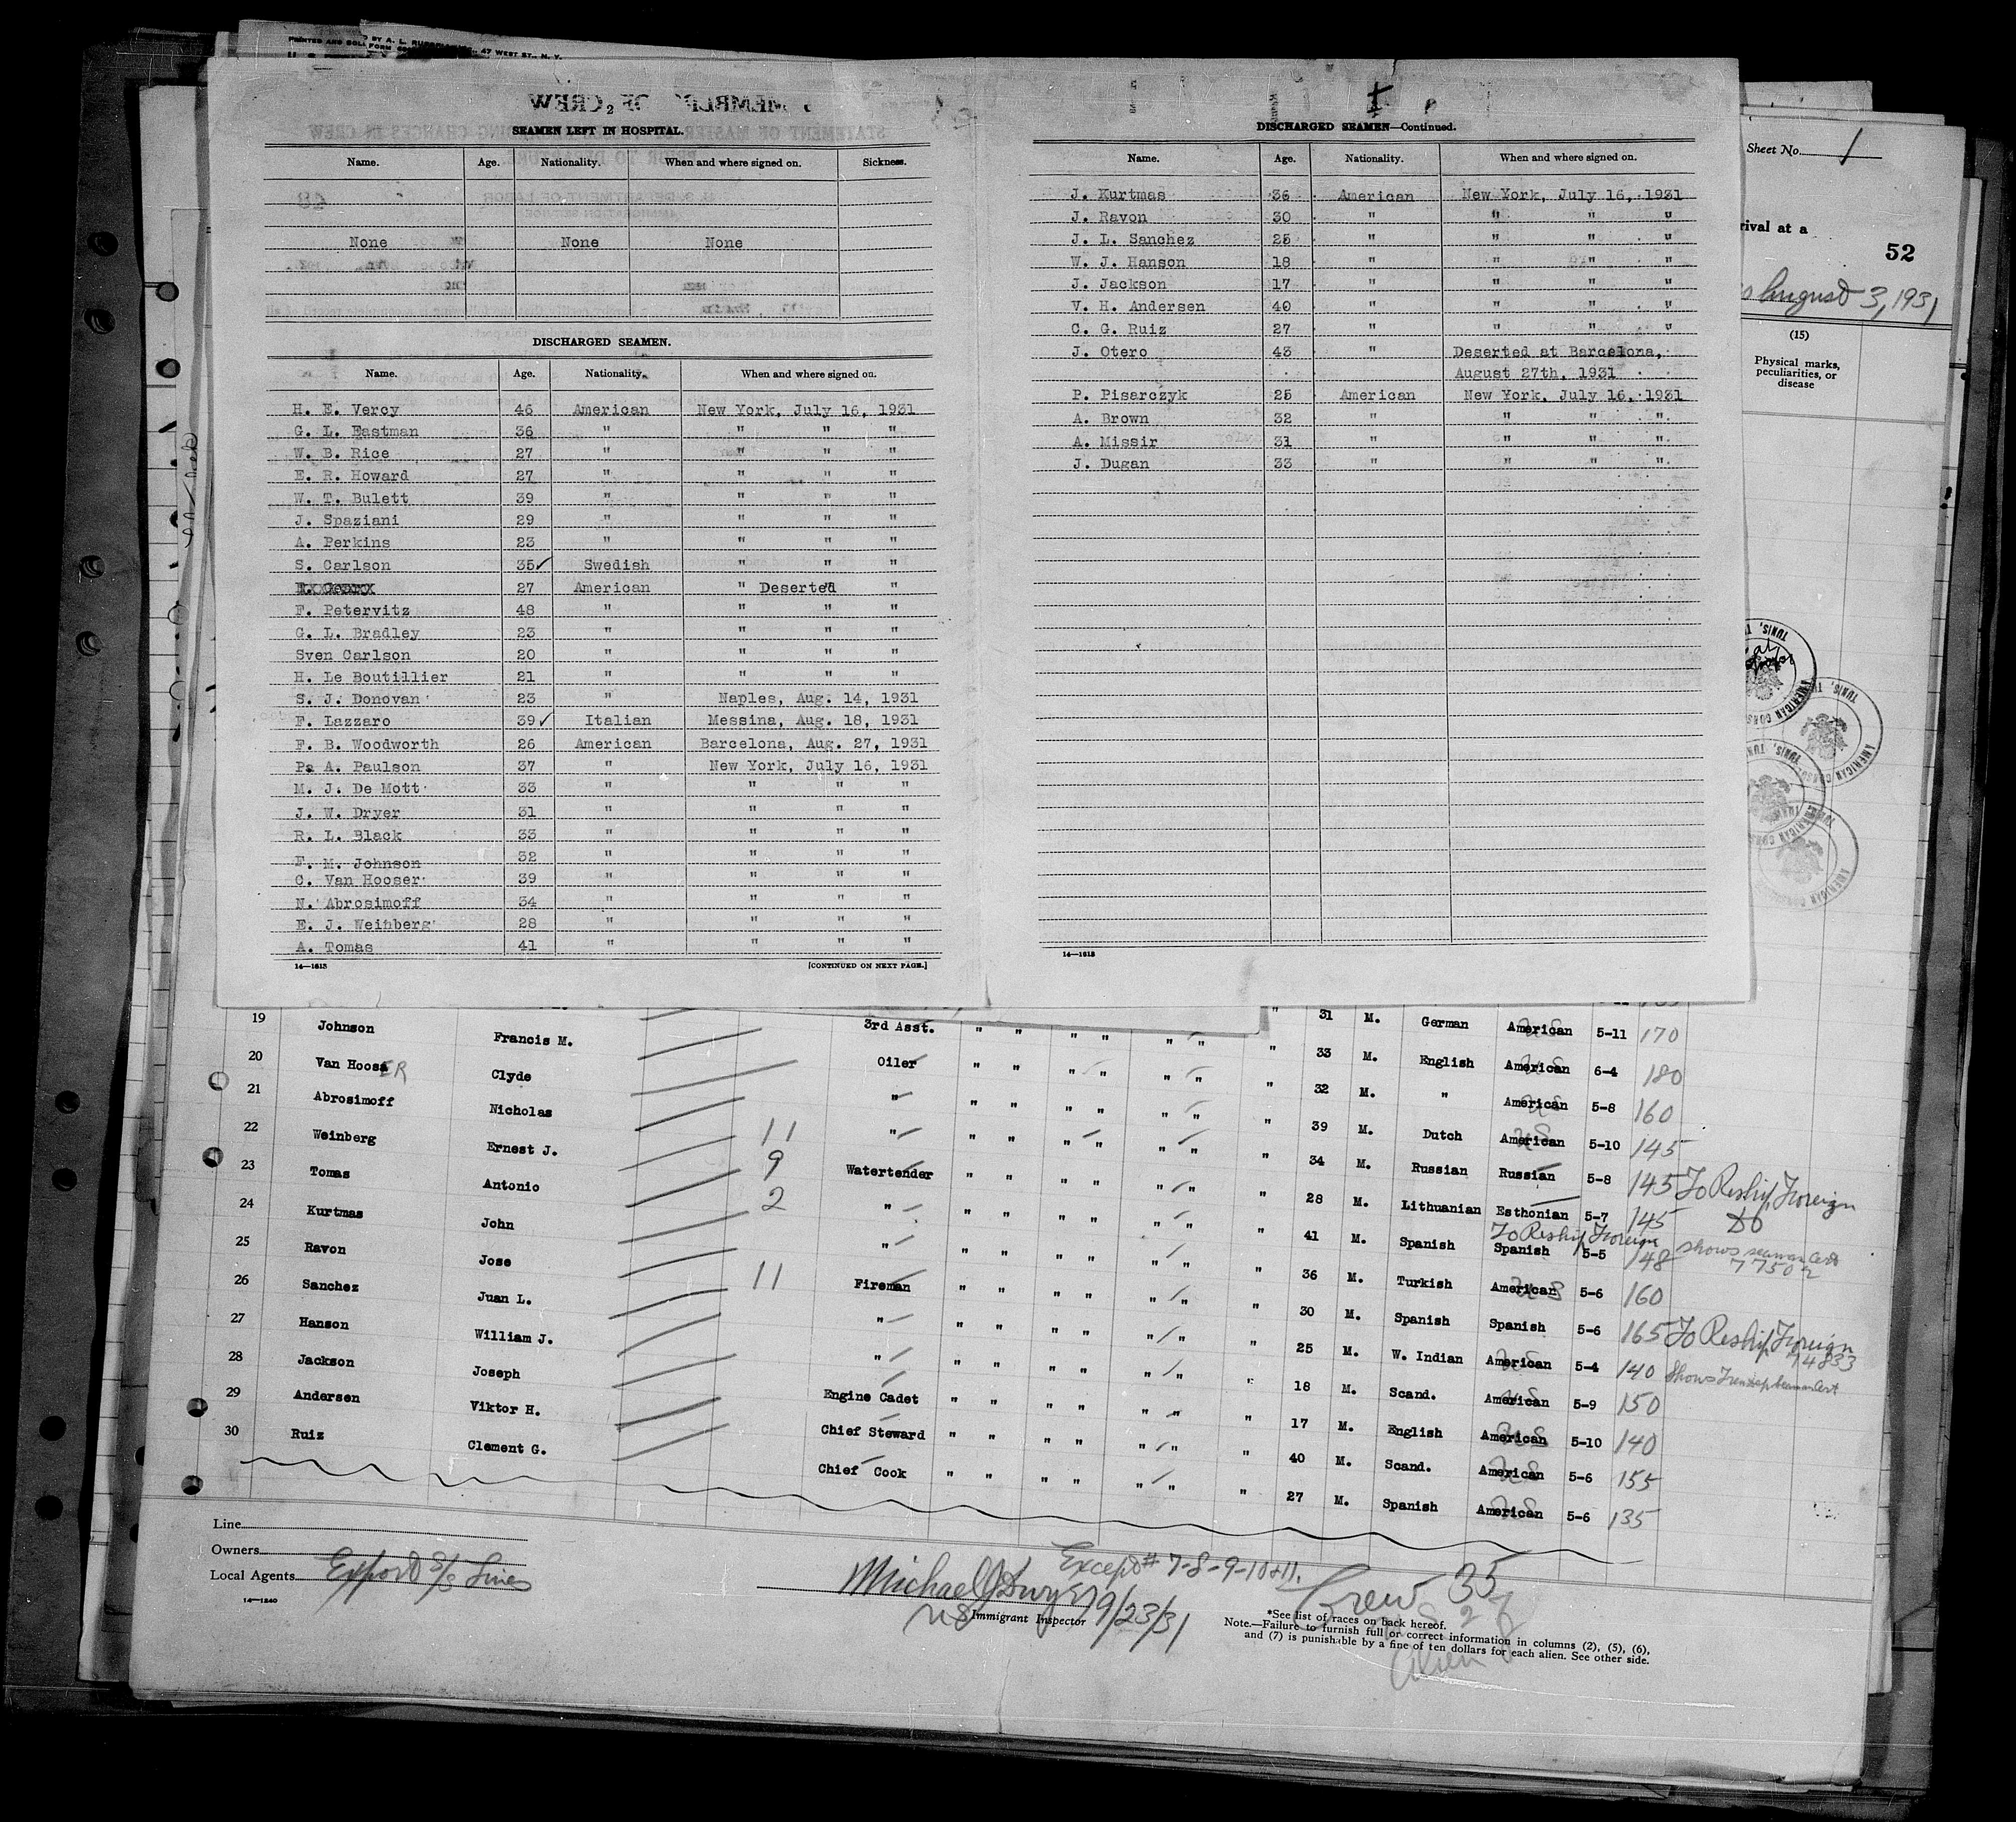 SEAMEN LEFT IN HOSPITAL.
Name. Age. Nationality. When and where signed on. Sickness.
None None None
DISCHARGED SEAMEN.
Name. Age. Nationality. When and where signed on.
H. E. Vercy 46 American New York, July 16, 1931
G. L. Eastman 36 " " " "
W. B. Rice 27 " " " "
E. R. Howard 27 " " " "
W. T. Bulett 39 " " " "
J. Spaziani 29 " " " "
A. Perkins 23 " " " "
S. Carlson 35✓ Swedish " " "
27 American " Deserted "
F. Petervitz 48 " " " "
G. L. Bradley 23 " " " "
Sven Carlson 20 " " " "
H. Le Boutillier 21 " " " "
S. J. Donovan 23 " Naples, Aug. 14, 1931
F. Lazzaro 39✓ Italian Messina, Aug. 18, 1931
F. B. Woodworth 26 American Barcelona, Aug. 27, 1931
Pa A. Paulson 37 " New York, July 16, 1931
M. J. De Mott 33 " " " "
J. W. Dryer 31 " " " "
R. L. Black 33 " " " "
F. M. Johnson 32 " " " "
C. Van Hooser 39 " " " "
N. Abrosimoff 34 " " " "
E. J. Weinberg 28 " " " "
A. Tomas 41 " " " "
14—1813 [CONTINUED ON NEXT PAGE.]
DISCHARGED SEAMEN—Continued.
Name. Age. Nationality. When and where signed on.
J. Kurtmas 36 American New York, July 16, 1931
J. Ravon 30 " " " "
J. L. Sanchez 25 " " " "
W. J. Hanson 18 " " " "
J. Jackson 17 " " " "
V. H. Andersen 40 " " " "
C. G. Ruiz 27 " " " "
J. Otero 43 " Deserted at Barcelona,
August 27th, 1931
P. Pisarczyk 25 American New York, July 16, 1931
A. Brown 32 " " " "
A. Missir 31 " " " "
J. Dugan 33 " " " "
14—1813
Sheet No. 1
rival at a
52
August 3, 1931
(15)
Physical marks,
peculiarities, or
disease
19 Johnson Francis M. 3rd Asst. " " " " " " " 31 M. German American 5-11 170
20 Van Hoosa ER Clyde Oiler " " " " " " " 33 M. English American 6-4 180
21 Abrosimoff Nicholas " " " " " " " " 32 M. " American 5-8 160
22 Weinberg Ernest J. 11 " " " " " " " " 39 M. Dutch American 5-10 145
23 Tomas Antonio 9 Watertender " " " " " " " 34 M. Russian Russian 5-8 145 To Reship Foreign
24 Kurtmas John 2 " " " " " " " " 28 M. Lithuanian Esthonian 5-7 145 Do
To Reship Foreign
25 Ravon Jose " " " " " " " " 41 M. Spanish Spanish 5-5 148 shows seaman Cert
26 Sanchez Juan L. 11 Fireman " " " " " " " 36 M. Turkish American 5-6 160
27 Hanson William J. " " " " " " " " 30 M. Spanish Spanish 5-6 165 To Reship Foreign
28 Jackson Joseph " " " " " " " " 25 M. W. Indian American 5-4 140
29 Andersen Viktor H. Engine Cadet " " " " " " " 18 M. Scand. American 5-9 150
30 Ruiz Clement G. Chief Steward " " " " " " " 17 M. English American 5-10 140
Chief Cook " " " " " " " 40 M. Scand. American 5-6 155
27 M. Spanish American 5-6 135
Line
Owners
Local Agents Export S/S Lines
14—1240
Except # 7-8-9-10&11.
Michael J Dwyer 9/23/31
Immigrant Inspector
Crew 35
*See list of races on back hereof.
Note.—Failure to furnish full or correct information in columns (2), (5), (6),
and (7) is punishable by a fine of ten dollars for each alien. See other side.
Alien